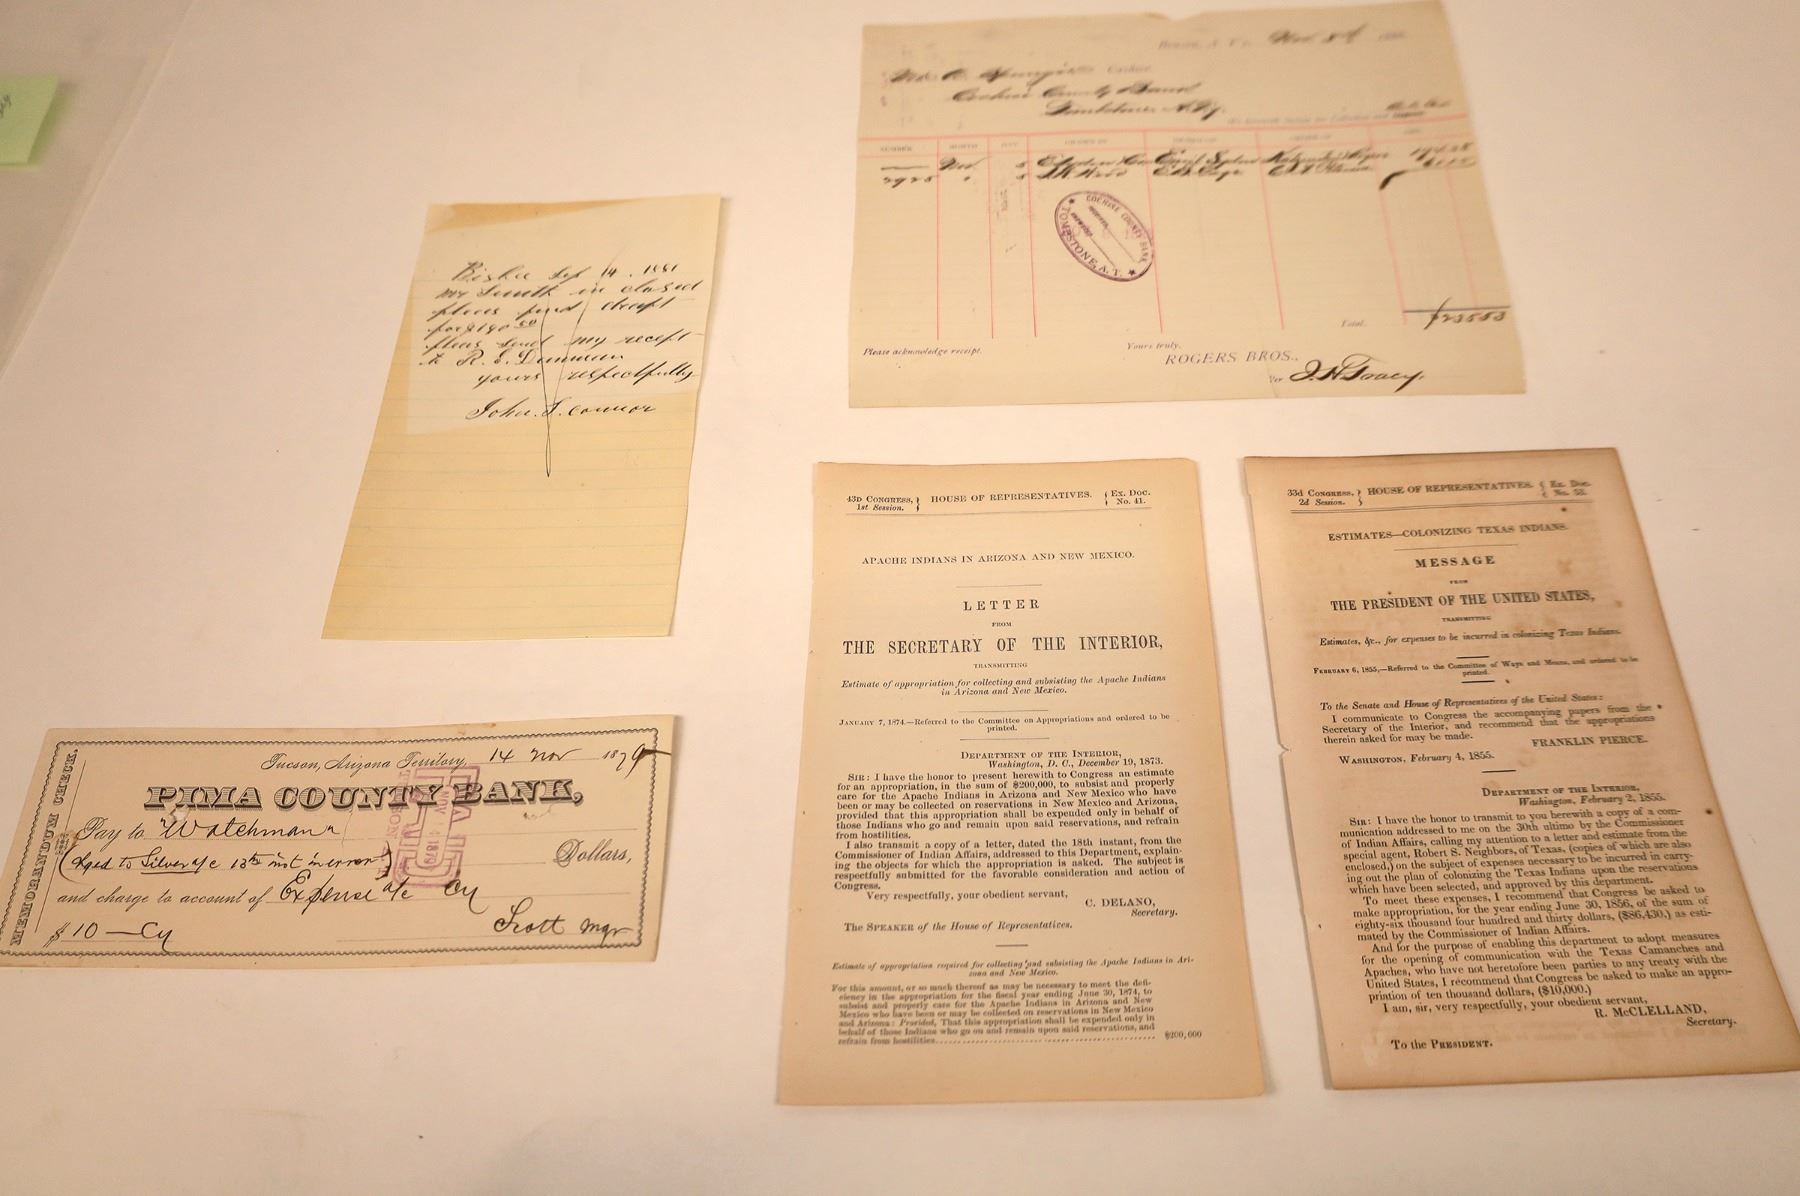 Bisbee Sept 14. 1881
Mr Smith in closed
pleas find cheept
for $190 50
pleas send my recept
to R. E. Dunman
yours respectfully
John. S. Connor
Benson, A. T., Nov 8th 188
Cashier
Cochise County Bank
Tombstone A. Ty.
NUMBER MONTH
Nov. 5
2925 " 5
COCHISE COUNTY BANK
TOMBSTONE, A. T.
Total. 235 53
Please acknowledge receipt.
Yours truly,
ROGERS BROS.,
Per J. H. Tracy.
MEMORANDUM CHECK.
Tucson, Arizona Territory, 14 Nov 1879
PIMA COUNTY BANK,
Pay to "Watchman"
(Aged to Silver a/c 13th inst in error) Dollars,
and charge to account of Expense a/c Cy
$10 — Cy Scott Mgr
PAID
NOV 1879
TUCSON
43D CONGRESS, } HOUSE OF REPRESENTATIVES. { EX. DOC.
1st Session. } { No. 41.
APACHE INDIANS IN ARIZONA AND NEW MEXICO.
LETTER
FROM
THE SECRETARY OF THE INTERIOR,
TRANSMITTING
Estimate of appropriation for collecting and subsisting the Apache Indians
in Arizona and New Mexico.
JANUARY 7, 1874.—Referred to the Committee on Appropriations and ordered to be
printed.
DEPARTMENT OF THE INTERIOR,
Washington, D. C., December 19, 1873.
SIR: I have the honor to present herewith to Congress an estimate
for an appropriation, in the sum of $200,000, to subsist and properly
care for the Apache Indians in Arizona and New Mexico who have
been or may be collected on reservations in New Mexico and Arizona,
provided that this appropriation shall be expended only in behalf of
those Indians who go and remain upon said reservations, and refrain
from hostilities.
I also transmit a copy of a letter, dated the 18th instant, from the
Commissioner of Indian Affairs, addressed to this Department, explain-
ing the objects for which the appropriation is asked. The subject is
respectfully submitted for the favorable consideration and action of
Congress.
Very respectfully, your obedient servant,
C. DELANO,
Secretary.
The SPEAKER of the House of Representatives.
Estimate of appropriation required for collecting and subsisting the Apache Indians in Ari-
zona and New Mexico.
For this amount, or so much thereof as may be necessary to meet the defi-
ciency in the appropriation for the fiscal year ending June 30, 1874, to
subsist and properly care for the Apache Indians in Arizona and New
Mexico who have been or may be collected on reservations in New Mexico
and Arizona: Provided, That this appropriation shall be expended only in
behalf of those Indians who go on and remain upon said reservations, and
refrain from hostilities........ $200,000
33d CONGRESS, } HOUSE OF REPRESENTATIVES. { Ex. Doc.
2d Session. } { No. 52.
ESTIMATES—COLONIZING TEXAS INDIANS.
MESSAGE
FROM
THE PRESIDENT OF THE UNITED STATES,
TRANSMITTING
Estimates, &c., for expenses to be incurred in colonizing Texas Indians.
FEBRUARY 6, 1855.—Referred to the Committee of Ways and Means, and ordered to be
printed.
To the Senate and House of Representatives of the United States:
I communicate to Congress the accompanying papers from the
Secretary of the Interior, and recommend that the appropriations
therein asked for may be made.
FRANKLIN PIERCE.
WASHINGTON, February 4, 1855.
DEPARTMENT OF THE INTERIOR,
Washington, February 2, 1855.
SIR: I have the honor to transmit to you herewith a copy of a com-
munication addressed to me on the 30th ultimo by the Commissioner
of Indian Affairs, calling my attention to a letter and estimate from the
special agent, Robert S. Neighbors, of Texas, (copies of which are also
enclosed,) on the subject of expenses necessary to be incurred in carry-
ing out the plan of colonizing the Texas Indians upon the reservations
which have been selected, and approved by this department.
To meet these expenses, I recommend that Congress be asked to
make appropriation, for the year ending June 30, 1856, of the sum of
eighty-six thousand four hundred and thirty dollars, ($86,430,) as esti-
mated by the Commissioner of Indian Affairs.
And for the purpose of enabling this department to adopt measures
for the opening of communication with the Texas Camanches and
Apaches, who have not heretofore been parties to any treaty with the
United States, I recommend that Congress be asked to make an appro-
priation of ten thousand dollars, ($10,000.)
I am, sir, very respectfully, your obedient servant,
R. McCLELLAND,
Secretary.
To the PRESIDENT.